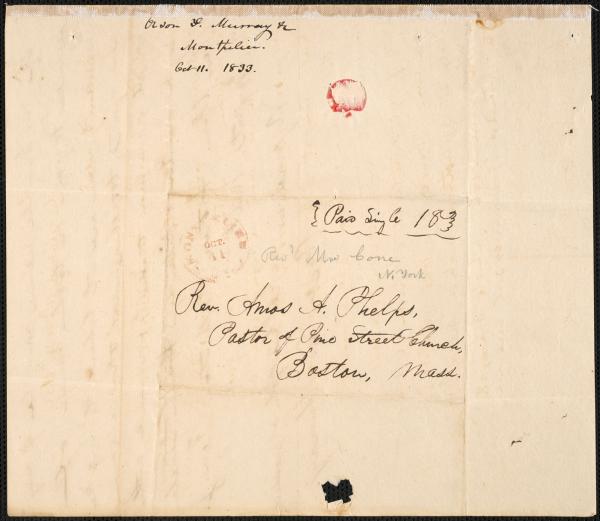 Orson S. Murray &c
Montpelier.
Oct 11. 1833.
Paid Single 18¾
MONTPELIER
OCT.
11
Revd Mr Cone
N. York
Rev. Amos A. Phelps,
Pastor of Pine Street Church,
Boston, Mass.